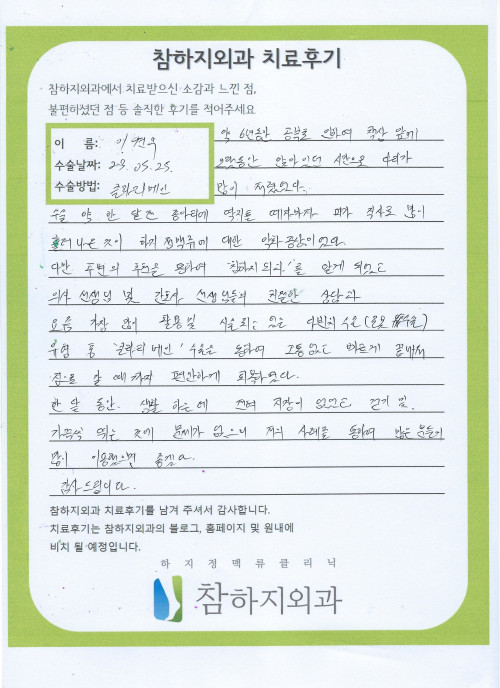 참하지외과 치료후기
참하지외과에서 치료받으신 소감과 느낀 점,
불편하셨던 점 등 솔직한 후기를 적어주세요
이 름:
수술날짜: 23. 05. 25.
수술방법: 클라리베인
약 6년동안 공부로 인하여 책상 앞에
오랫동안 앉아 있던 시간으로 다리가
많이 저렸었다.
수술 약 한 달 전 종아리에 딱지를 떼자마자 피가 많이
흘러 나온 것이 하지정맥류에 대한 악화 증상이었다.
다만 주변의 추천을 통하여 '참하지외과'를 알게 되었고
의사 선생님 및 간호사 선생님들의 친절한 상담과
요즘 가장 많이 활용될 수술
유형 중 '클라리베인' 수술을 통하여 고통없고 빠르게 끝내서
집으로 갈 때까지 편안하게 회복하였다.
한 달 동안. 생활 하는데 전혀 지장이 없었고 걷기 및.
가끔씩 뛰는 것에 문제가 없으니 저의 사례를 통하여 많은 분들이
많이 이용했으면 좋겠다.
감사드립니다.
참하지외과 치료후기를 남겨 주셔서 감사합니다.
치료후기는 참하지외과의 블로그, 홈페이지 및 원내에
비치 될 예정입니다.
하지정맥류클리닉
참하지외과